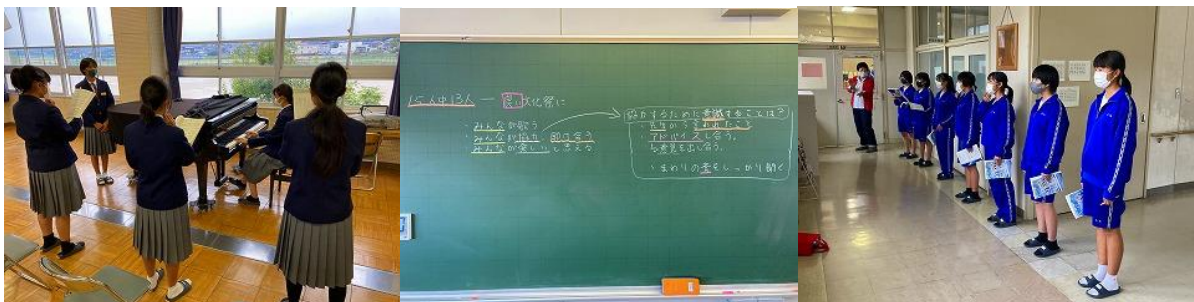 15人中13人 ― 良い文化祭に
・みんなが歌う
・みんなが協力、助け合う
・みんなが楽しいと思える
協力するために意識することは?
・先生から言われたこと
・アドバイスし合う。
・意見を出し合う。
・まわりの音をしっかり聞く